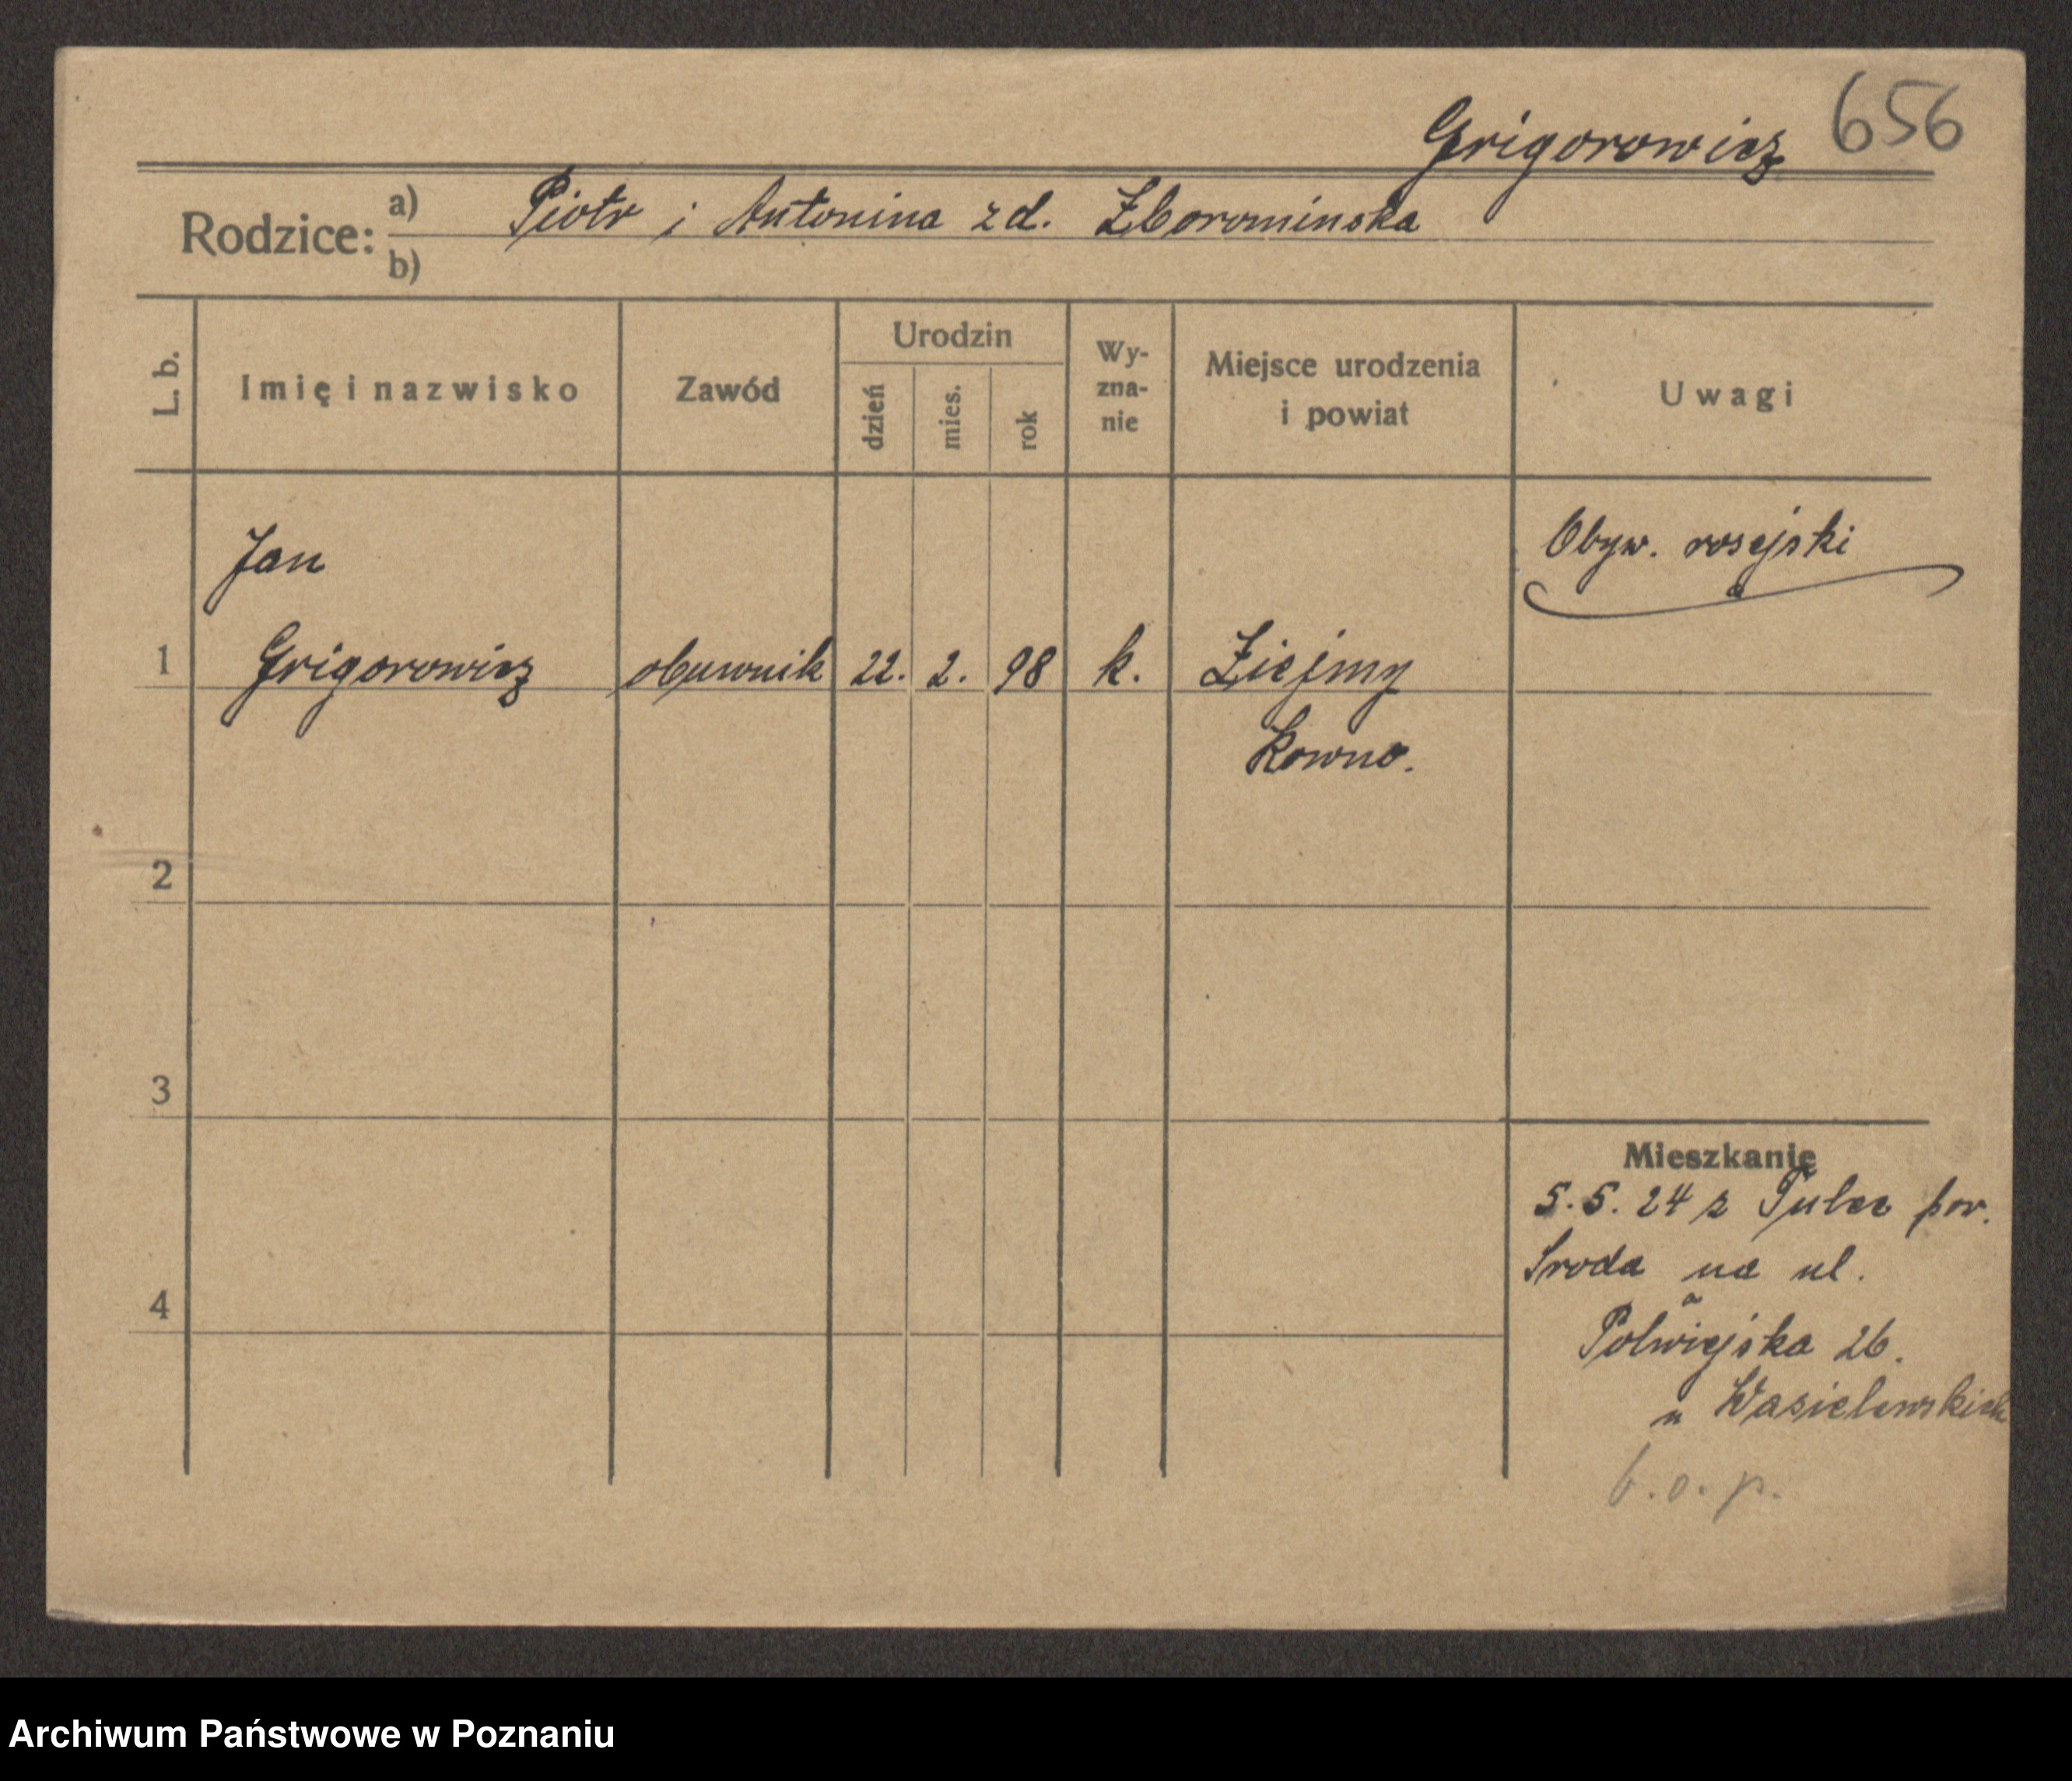 Grigorowicz 656
Rodzice: a) Piotr i Antonina zd. Zborominska
b)
L. b. Imię i nazwisko Zawód Urodzin dzień mies. rok Wy-zna-nie Miejsce urodzenia i powiat Uwagi
Jan Obyw. rosejski
1 Grigorowicz obuwnik 22. 2. 98 k. Ziejmy
Kowno.
2
3
Mieszkanie
5.5.24 z Tulec pow.
Sroda na ul.
4
Polwiejska 26.
u Wasielewskich
b.o.p.
Archiwum Państwowe w Poznaniu